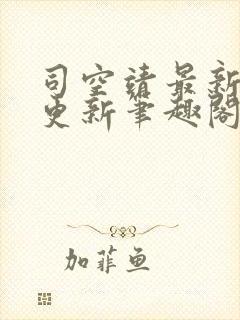 司空靖最新
更新笔趣阁
加菲鱼